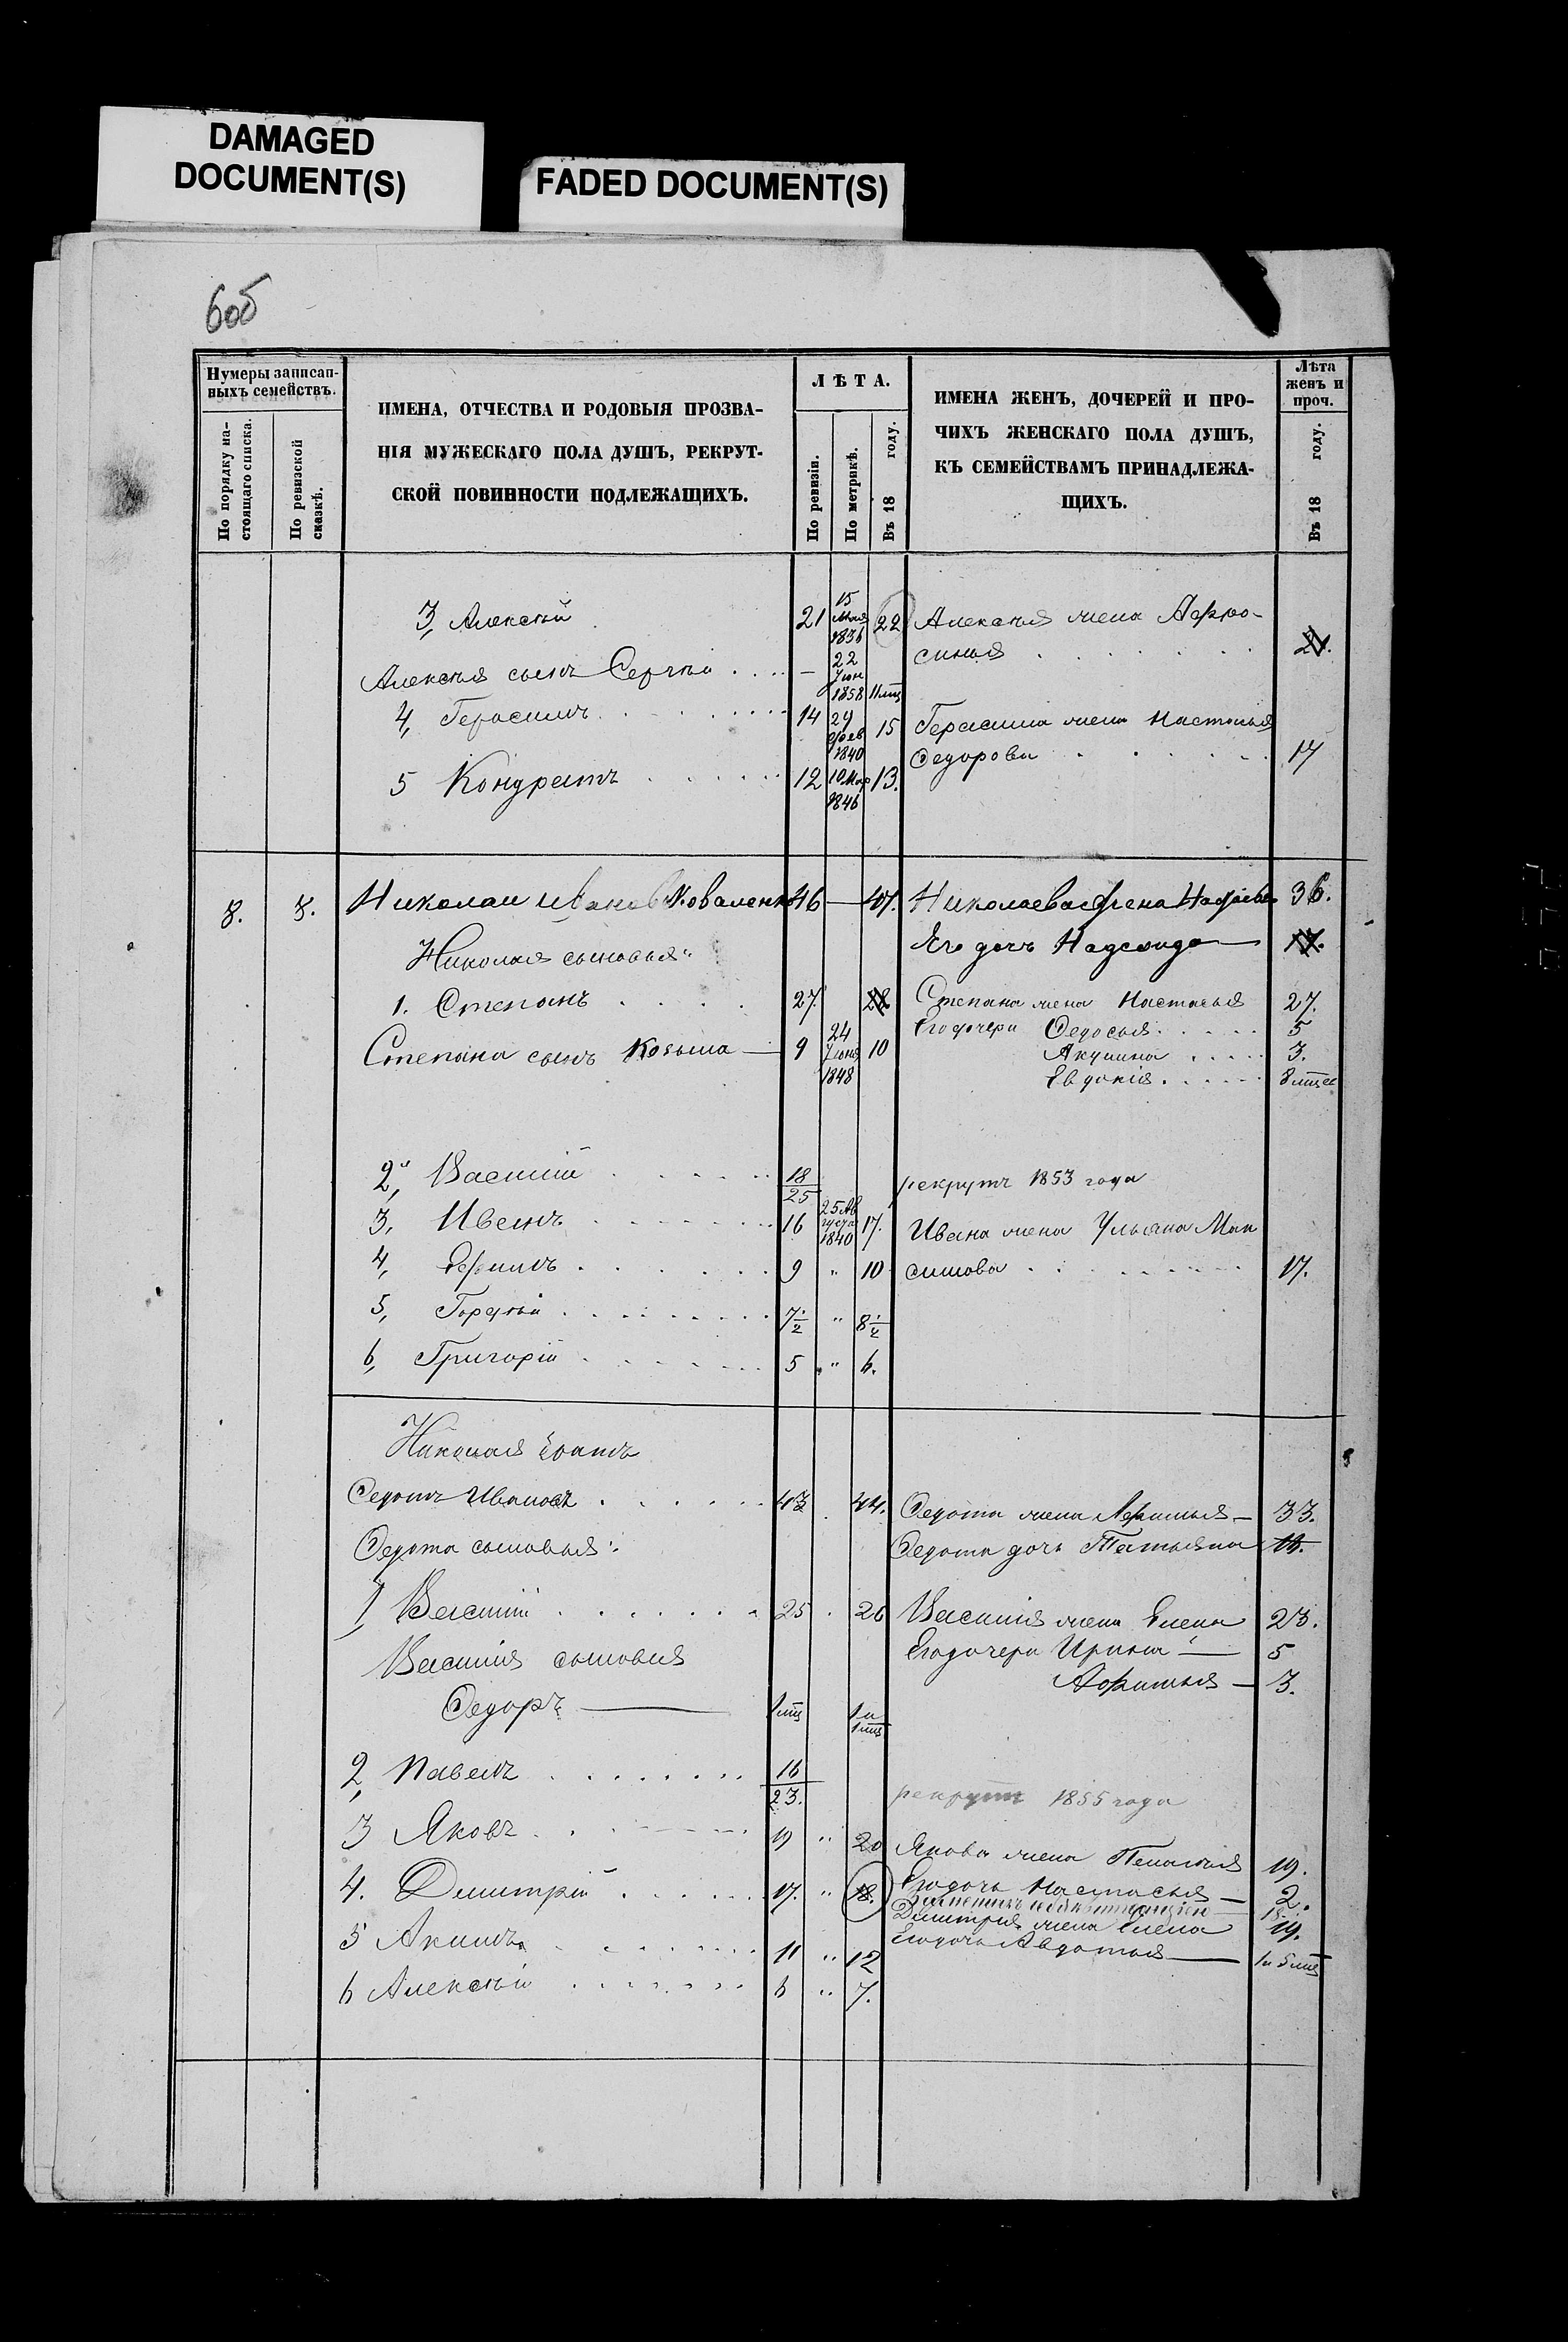 DAMAGED
DOCUMENT(S)
FADED DOCUMENT(S)
6об
Нумеры записан-
ныхъ семействъ.
По порядку на-
стоящаго списка.
По ревизской
сказкѣ.
ИМЕНА, ОТЧЕСТВА И РОДОВЫЯ ПРОЗВА-
НІЯ МУЖЕСКАГО ПОЛА ДУШЪ, РЕКРУТ-
СКОЙ ПОВИННОСТИ ПОДЛЕЖАЩИХЪ.
ЛѢТА.
По ревизіи.
По метрикѣ.
Въ 18 году.
ИМЕНА ЖЕНЪ, ДОЧЕРЕЙ И ПРО-
ЧИХЪ ЖЕНСКАГО ПОЛА ДУШЪ,
КЪ СЕМЕЙСТВАМЪ ПРИНАДЛЕЖА-
ЩИХЪ.
Лѣта
женъ и
проч.
Въ 18 году.
3, Алексѣй 21 15 Мая 1836 22 Алексѣя жена Афро-
синья
Алексѣя сынъ Сергѣй — 22 Іюн 1858 11 мц
4, Герасимъ 14 29 фев 1840 15 Герасима жена Настасья
Федорова 17
5 Кондратъ 12 10 Мар 1846 13.
8. 8. Николай Ивановъ Коваленко 46 — 47. Николаева жена 36.
Николая сыновья: Его дочь 17.
1. Степанъ 27. 28 Степана жена Настасья 27.
Его дочери Федосья 5
Степана сынъ Козьма — 9 24 Іюня 1848 10 Акулина 3.
Евдокія 8 мце
2, Василій 18/25 рекрутъ 1853 года
3, Иванъ 16 25 Августа 1840 17. Ивана жена Ульяна Мак
4, Ефимъ 9 " 10 симова 17.
5, Гордѣй 7 1/2 " 8 1/2
6, Григорій 5 " 6.
Николая братъ
Федотъ Ивановъ 43 44. Федота жена 33.
Федота сыновья: Федота дочь Татьяна
1, Василій 25 26 Василія жена Елена 23.
Василія сыновья Его дочери Ирина — 5
— 3.
Федоръ — 1 мц 1 и 1 мц
2, Павелъ 16/23. рекрутъ 1855 года
3 Яковъ 19 " 20 Якова жена Пелагея 19.
Его дочь Настасья — 2.
4. Димитрій 17. " 18.
Димитрія жена Елена 19.
5 Акимъ 11 " 12 Его дочь Авдотья — 1 и 5 мц
6 Алексѣй 6 " 7.